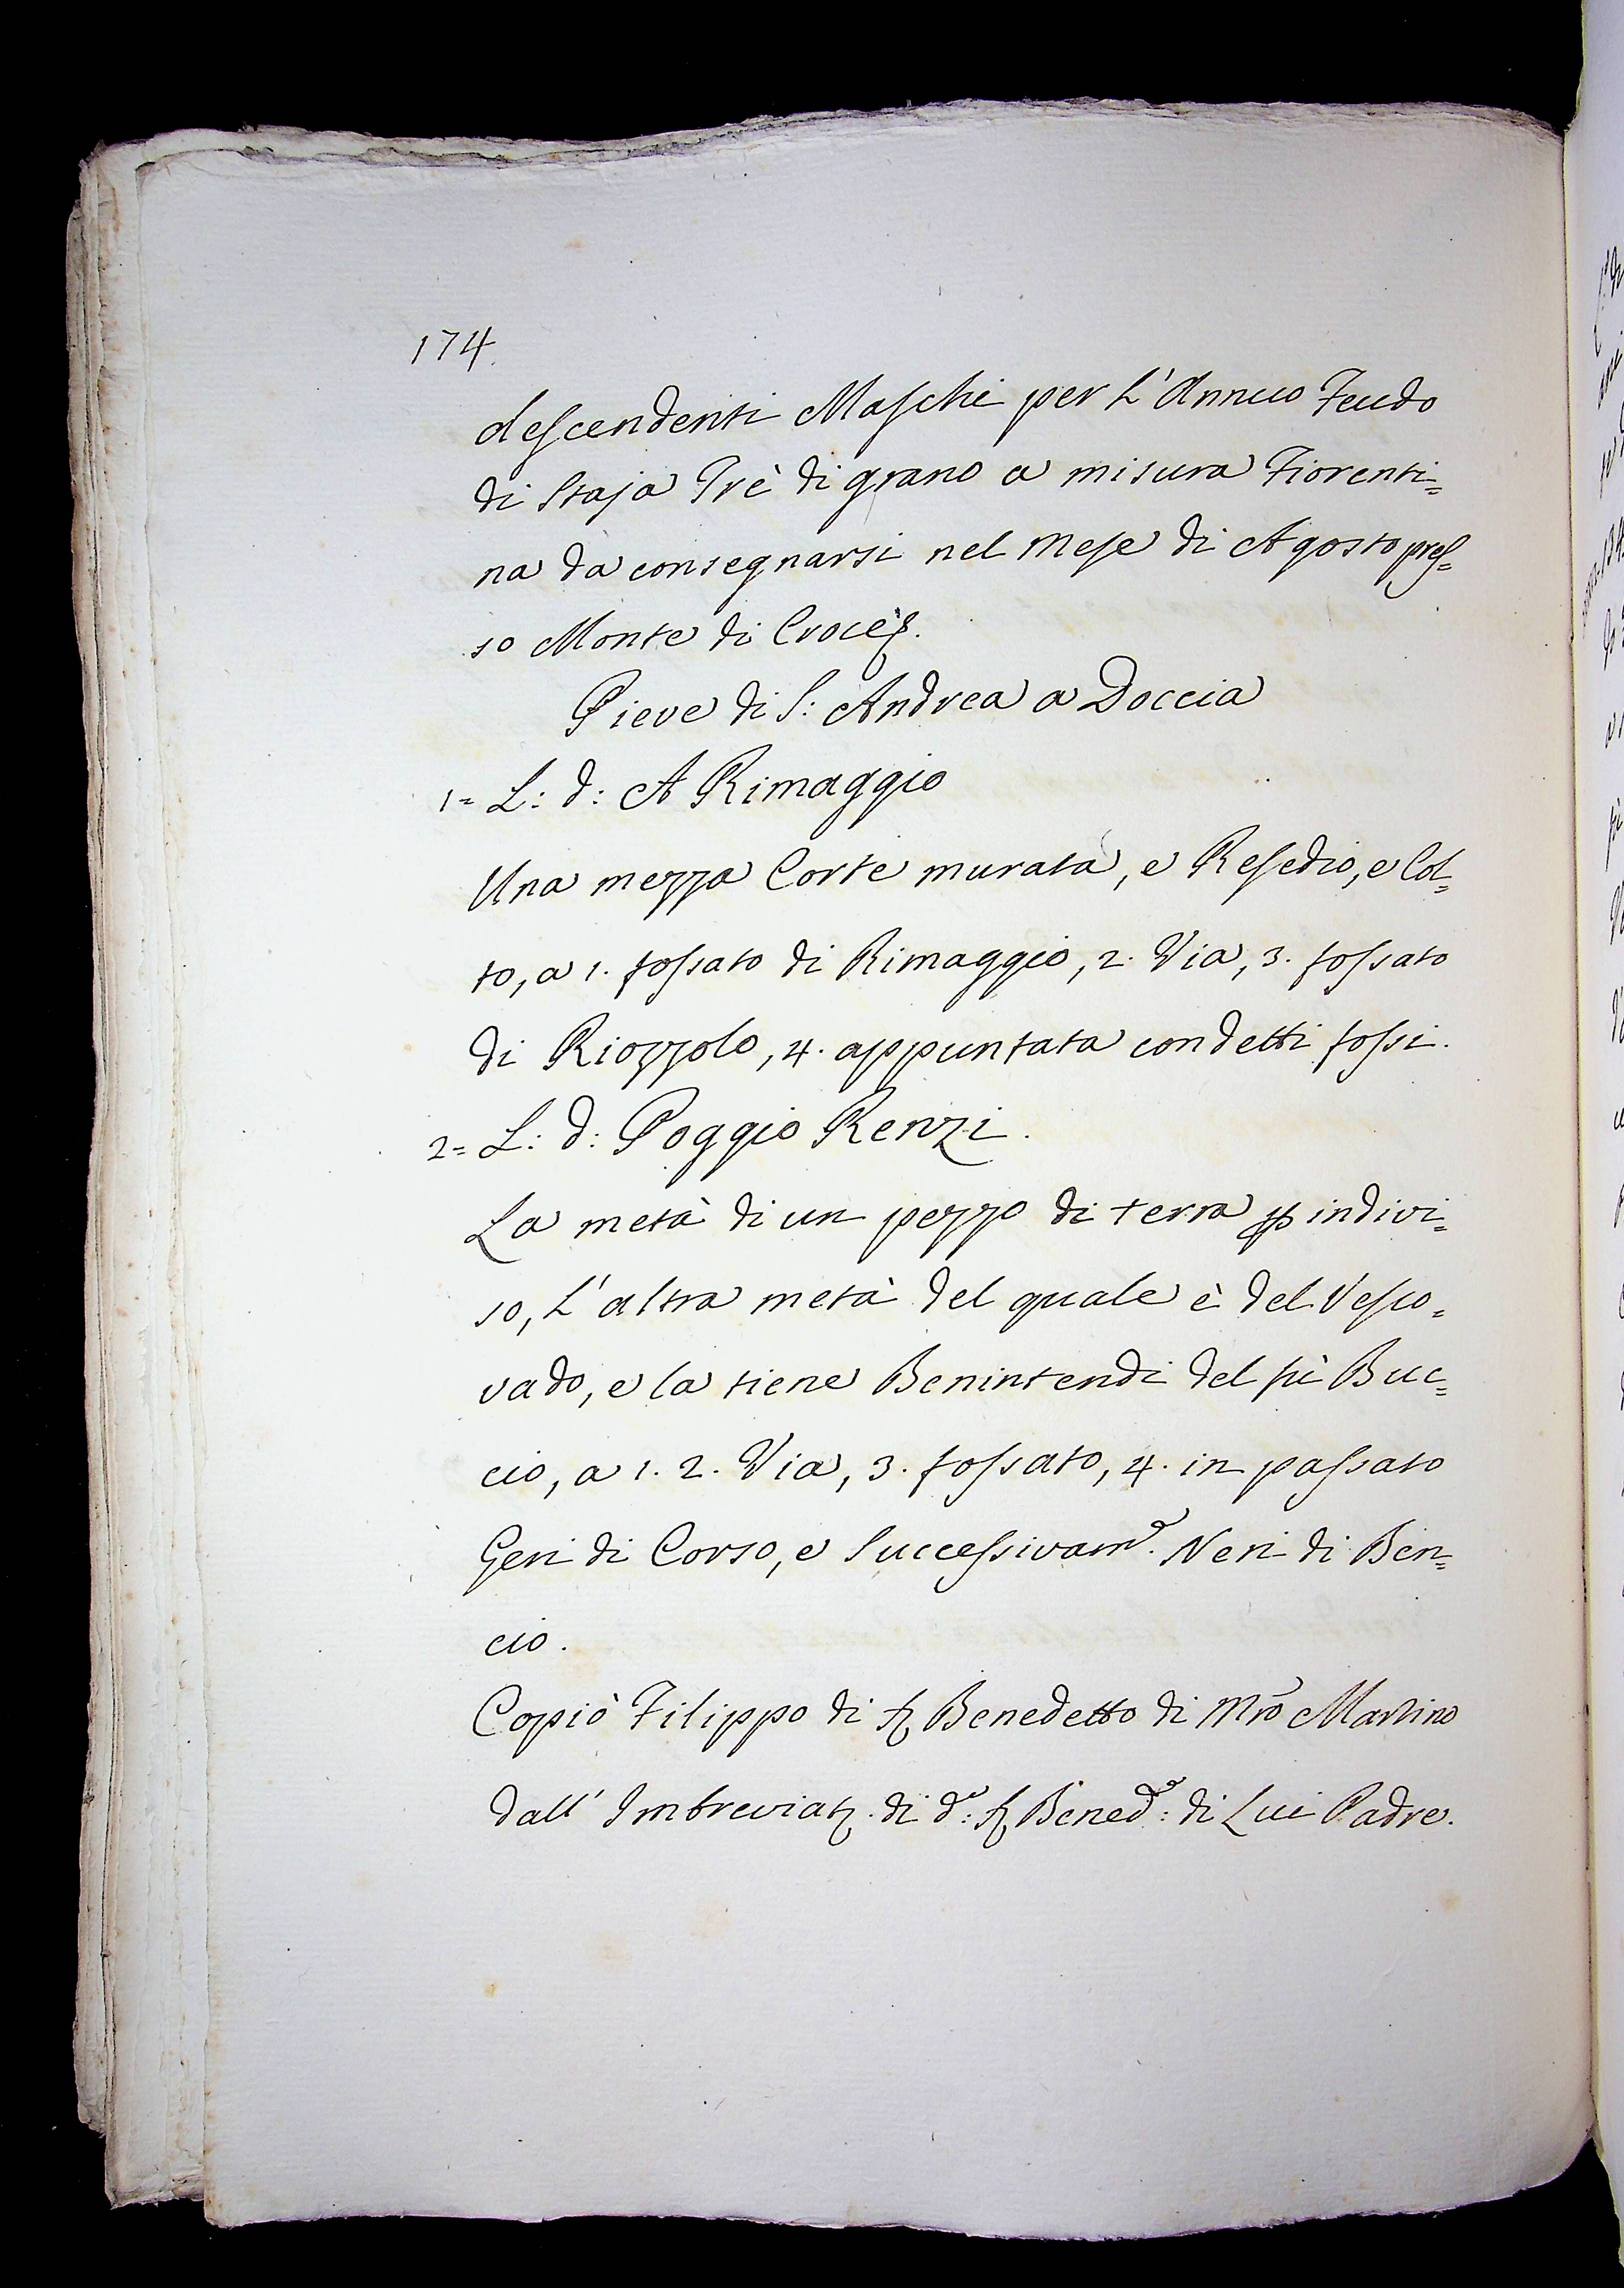 174
descendenti Maschi per L'Annuo Feudo
di Staja Trè di grano a misura Fiorenti=
na da consegnarsi nel Mese di Agosto pres=
so Monte di Croce
Pieve di S: Andrea a Doccia
1= L: d: A Rimaggio
Una mezza Corte murata, e Resedio, e Col=
to, a 1. fossato di Rimaggio, 2. Via, 3. fossato
di Riozzolo, 4. appuntata con detti fossi.
2= L: d: Poggio Renzi.
La metà di un pezzo di terra p indivi=
so, L'altra metà del quale è del Vesco=
vado, e la tiene Benintendi del fù Buc=
cio, a 1. 2. Via, 3. fossato, 4. in passato
Geri di Corso, e Successivam.e Neri di Ben=
cio.
Copiò Filippo di Benedetto di Mro Martino
dall' Imbreviat. di d.o: Bened.o: di Lui Padre.